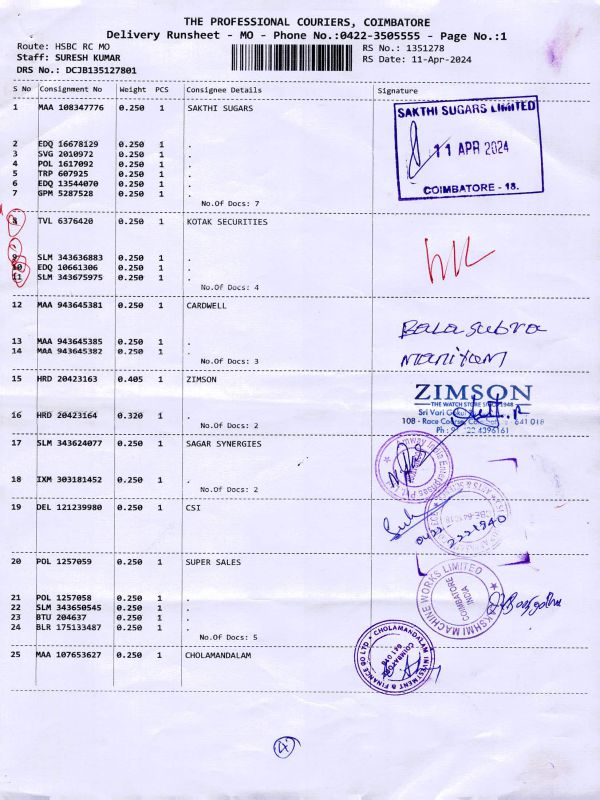 THE PROFESSIONAL COURIERS, COIMBATORE
Delivery Runsheet - MO - Phone No.:0422-3505555 - Page No.:1
Route: HSBC RC MO
RS No.: 1351278
Staff: SURESH KUMAR
RS Date: 11-Apr-2024
DRS No.: DCJB135127801
S No Consignment No Weight PCS Consignee Details Signature
1 MAA 108347776 0.250 1 SAKTHI SUGARS
SAKTHI SUGARS LIMITED
11 APR 2024
COIMBATORE - 18.
2 EDQ 16678129 0.250 1 .
3 SVG 2010972 0.250 1 .
4 POL 1617092 0.250 1 .
5 TRP 607925 0.250 1 .
6 EDQ 13544070 0.250 1 .
7 GPM 5287528 0.250 1 .
No.Of Docs: 7
8 TVL 6376420 0.250 1 KOTAK SECURITIES
9 SLM 343636883 0.250 1 .
10 EDQ 10661306 0.250 1 .
11 SLM 343675975 0.250 1 .
No.Of Docs: 4
12 MAA 943645381 0.250 1 CARDWELL
Balasubra
maniyam
13 MAA 943645385 0.250 1 .
14 MAA 943645382 0.250 1 .
No.Of Docs: 3
15 HRD 20423163 0.405 1 ZIMSON
ZIMSON
THE WATCH STORE SINCE 1948
Sri Vari
108 - Race Course, 641 018
Ph : 4396161
16 HRD 20423164 0.320 1 .
No.Of Docs: 2
17 SLM 343624077 0.250 1 SAGAR SYNERGIES
18 IXM 303181452 0.250 1 .
No.Of Docs: 2
19 DEL 121239980 0.250 1 CSI
0422
2221940
20 POL 1257059 0.250 1 SUPER SALES
LAKSHMI MACHINE WORKS LIMITED
COIMBATORE
INDIA
21 POL 1257058 0.250 1 .
22 SLM 343650545 0.250 1 .
23 BTU 204637 0.250 1 .
24 BLR 175133487 0.250 1 .
No.Of Docs: 5
25 MAA 107653627 0.250 1 CHOLAMANDALAM
CHOLAMANDALAM INVESTMENT & FINANCE CO LTD
COIMBATORE
641 018